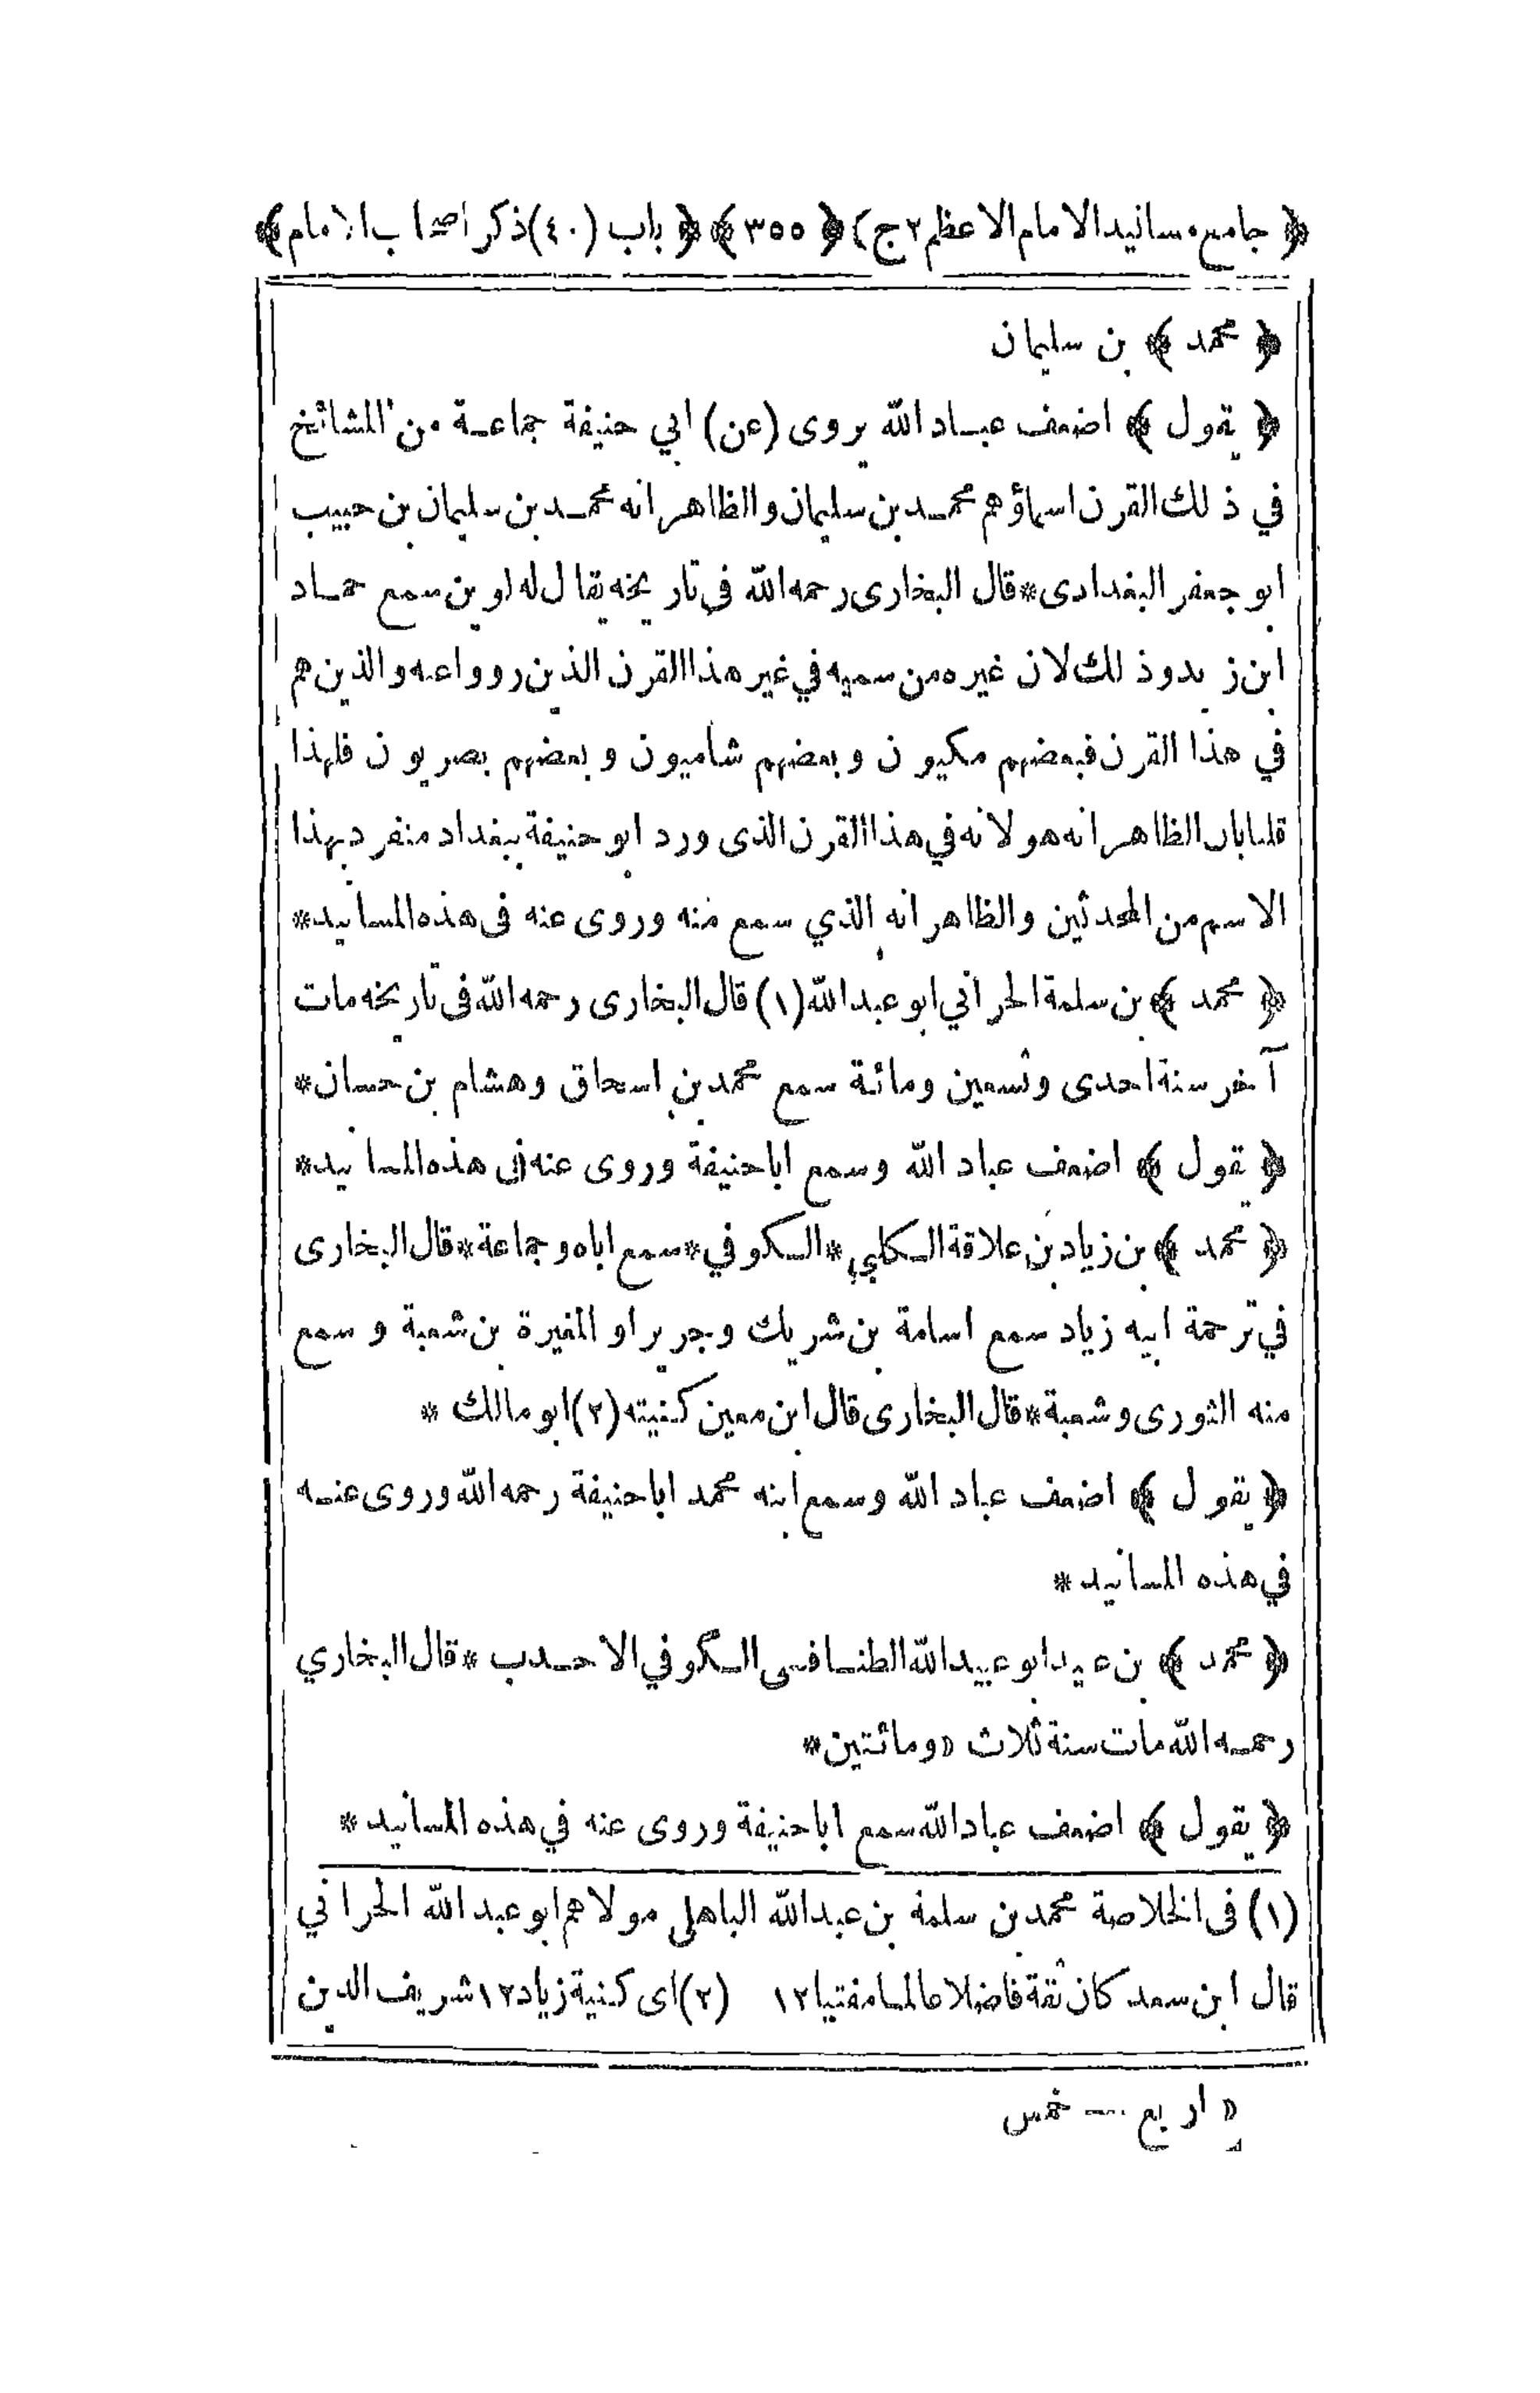 ﴿ جامع مسانيد الامام الاعظم ج٢ ﴾ ﴿ ٣٥٥ ﴾ ﴿ باب (٤٠) ذكر اصحاب الامام ﴾
﴿ محمد ﴾ بن سليمان
﴿ يقول ﴾ اضعف عباد الله يروى (عن) ابي حنيفة جماعة من المشائخ
في ذلك القرن اسماؤهم محمد بن سليمان والظاهر انه محمد بن سليمان بن حبيب
ابو جعفر البغدادى * قال البخارى رحمه الله في تاريخه يقال له لوين سمع حماد
ابن زيد وذلك لان غيره من سميه في غير هذا القرن الذين رووا عنه والذين هم
في هذا القرن فبعضهم مكيون وبعضهم شاميون وبعضهم بصريون فلهذا
قلنا بان الظاهر انه هو لانه في هذا القرن الذى ورد ابو حنيفة ببغداد منفرد بهذا
الاسم من المحدثين والظاهر انه الذي سمع منه وروى عنه فى هذه المسانيد *
﴿ محمد ﴾ بن سلمة الحراني ابو عبد الله (١) قال البخارى رحمه الله فى تاريخه مات
آخر سنة احدى وتسعين ومائة سمع محمد بن اسحاق وهشام بن حسان *
﴿ يقول ﴾ اضعف عباد الله وسمع ابا حنيفة وروى عنه فى هذه المسانيد *
﴿ محمد ﴾ بن زياد بن علاقة الكلبي * الكوفي * سمع اباه وجماعة * قال البخارى
في ترجمة ابيه زياد سمع اسامة بن شريك وجريرا و المغيرة بن شعبة وسمع
منه الثورى وشعبة * قال البخارى قال ابن معين كنيته (٢) ابو مالك *
﴿ يقول ﴾ اضعف عباد الله وسمع ابنه محمد ابا حنيفة رحمه الله وروى عنه
في هذه المسانيد *
﴿ محمد ﴾ بن عبيد ابو عبيد الله الطنافسى الكوفي الاحدب * قال البخاري
رحمه الله مات سنة ثلاث ۞ ومائتين *
﴿ يقول ﴾ اضعف عباد الله سمع ابا حنيفة وروى عنه في هذه المسانيد *
(١) فى الخلاصة محمد بن سلمة بن عبد الله الباهلى مولاهم ابو عبد الله الحراني
قال ابن سعد كان ثقة فاضلا عالما مفتيا ١٢ (٢) اى كنية زياد ١٢ شريف الدين
۞ اربع — خمس